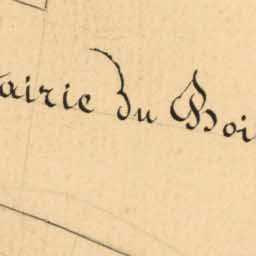 airie du Boi